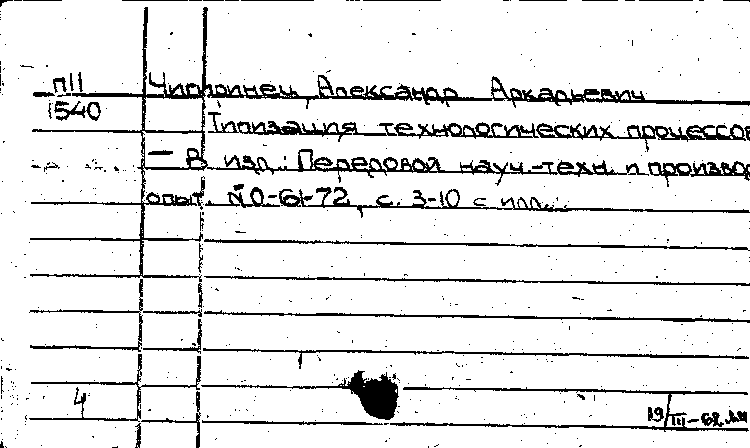 П11 Чиппинец, Александр Аркадьевич
1540
Типизация технологических процессов
– В изд.: Передовой науч.-техн. и производ
опыт. № 0-61-72, с. 3-10 с илл.
4
19/III-62.